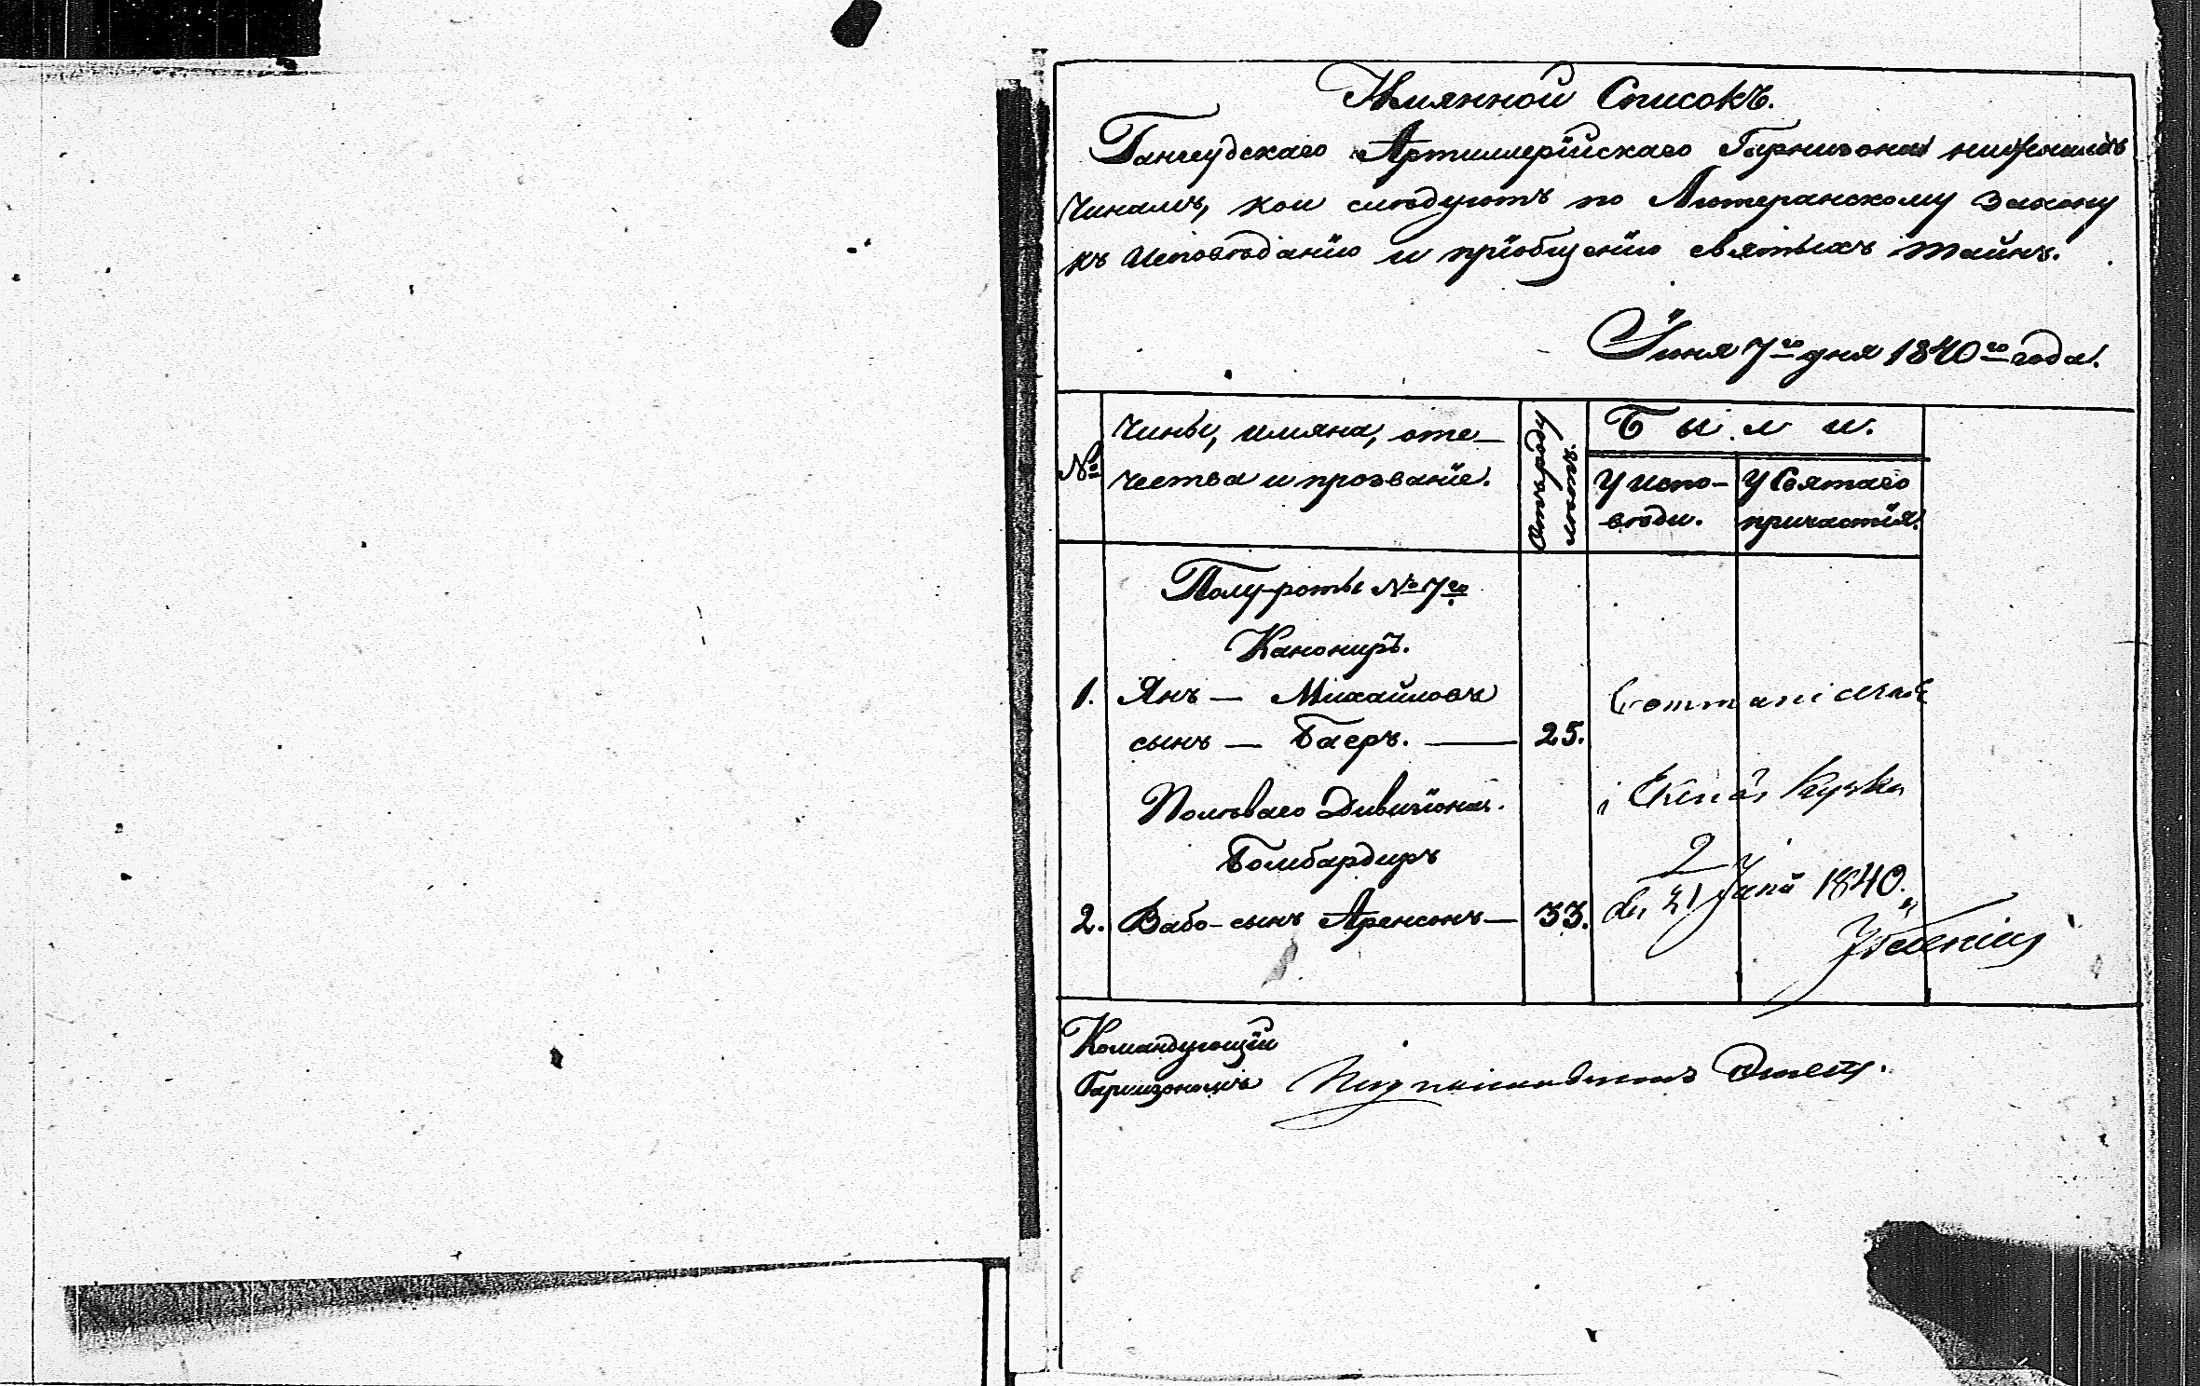 Имянной Списокъ.
Гангеудскаго Артиллерійскаго Гарнизона нижнимъ
Чинамъ, кои следуютъ по Лютеранскому закону
къ Исповѣданію и пріобщенію святыхъ тайнъ.
Іюня 7го дня 1840го года.
№
Чины, имяна, оте-
чества и прозваніе.
Отъ роду
лѣтъ.
Были.
У испо-
вѣди.
У Святаго
причастія.
Полу-роты № 7го
Канониръ.
1. Янъ — Михайловъ
сынъ — Баеръ. — 25.
Communicerat
Полеваго Дивизіона.
i Ekenäs kyrka
Бомбардиръ
2. Вабо-сынъ Аренсонъ — 33.
den 21 Junii 1840.
Командующій
Гарнизономъ